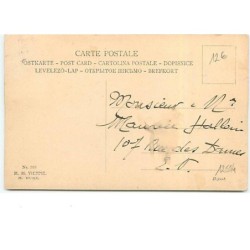 CARTE POSTALE
POSTKARTE - POST CARD - CARTOLINA POSTALE - DOPISNICE
LEVELEZŐ-LAP - ОТКРЫТОЕ ПИСЬМО - BREFKORT
126
Monsieur & Me
Maurice Hallein
107 Rue des Dunes
E. V.
M. M. VIENNE